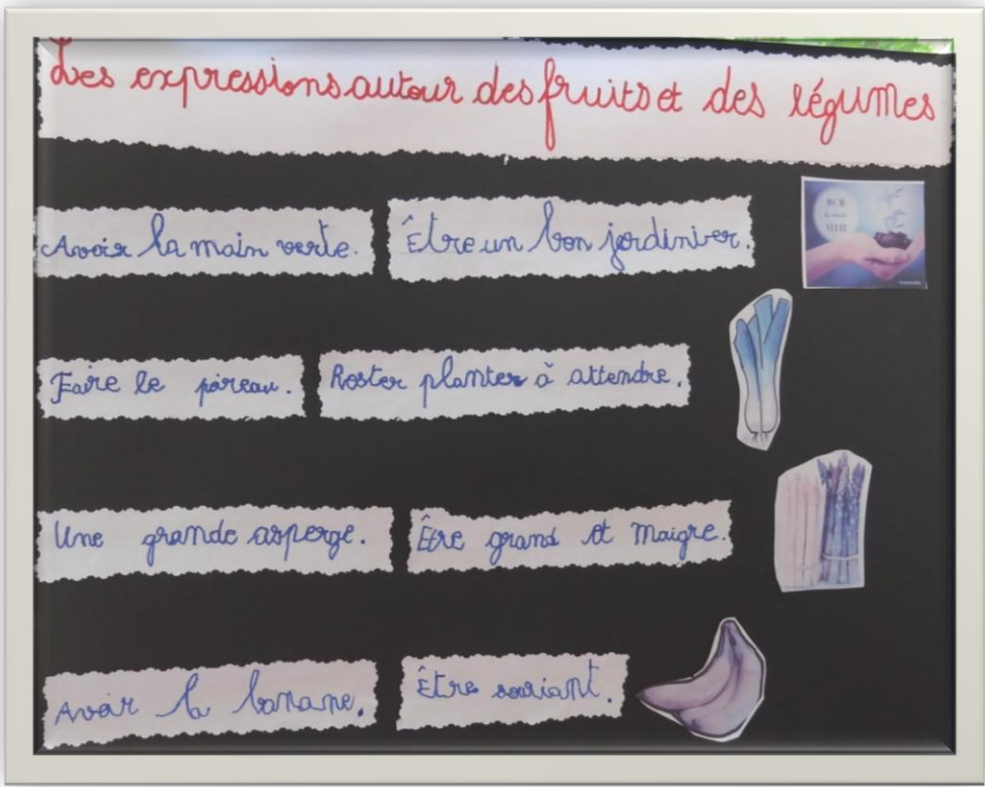 Les expressions autour des fruits et des légumes
Avoir la main verte.
Être un bon jardinier.
Faire le poireau.
Rester planter à attendre.
Une grande asperge.
Être grand et maigre.
Avoir la banane.
Être souriant.